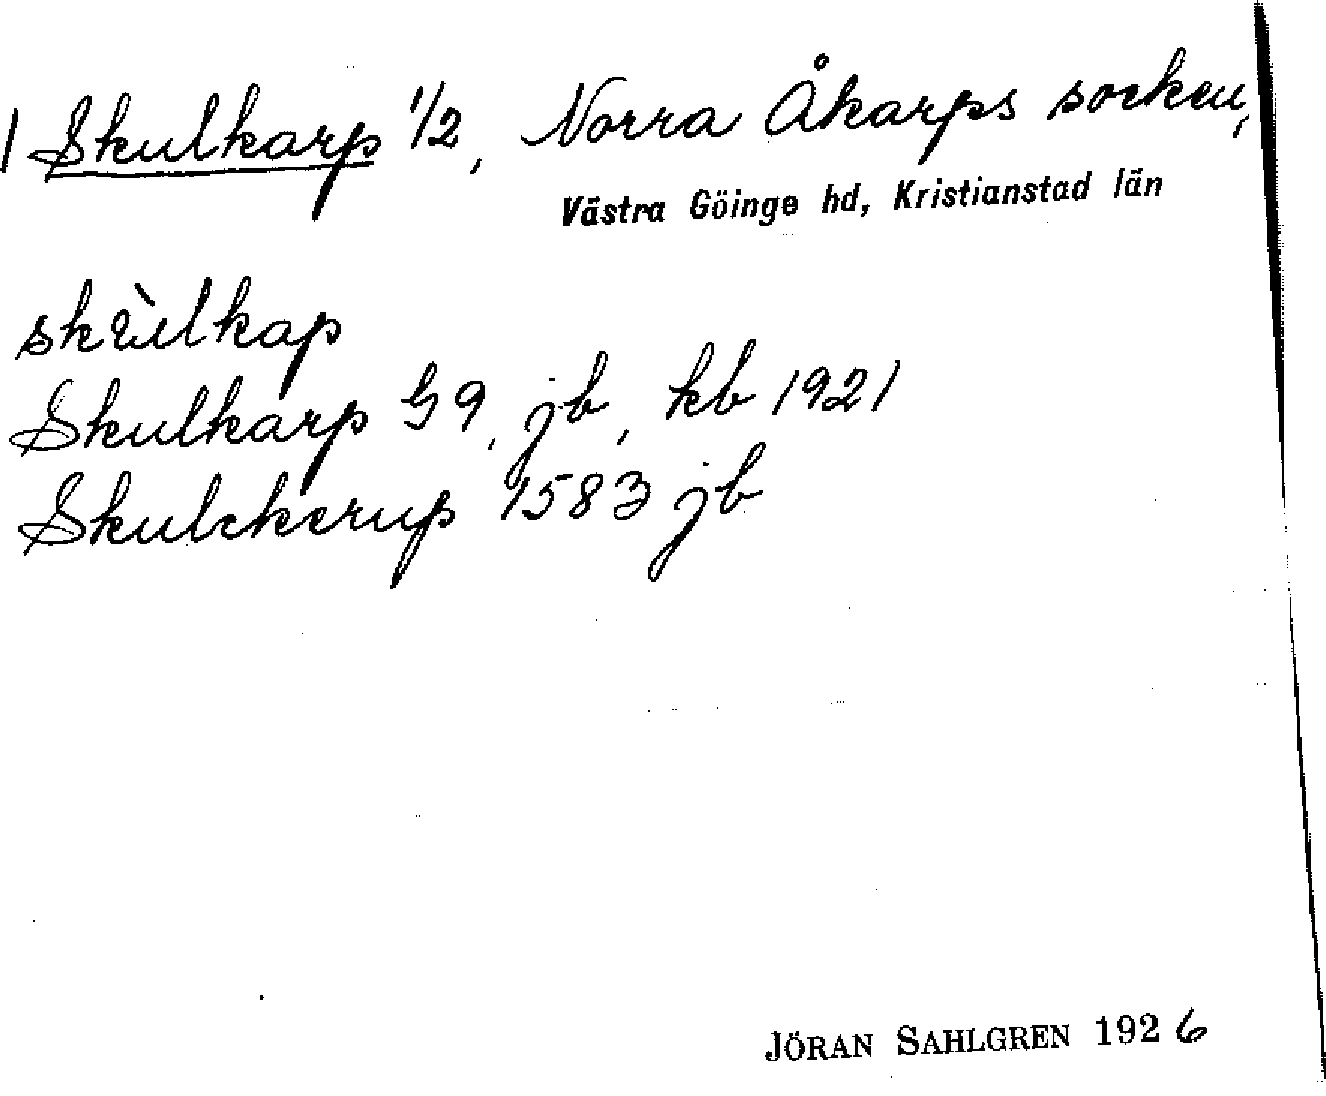 Skulkarp 1/2, Norra Åkarps socken,
Västra Göinge hd, Kristianstad län
Skulkarp G9, jb, kb 1921
Skulckerup 1583 jb
JÖRAN SAHLGREN 1926